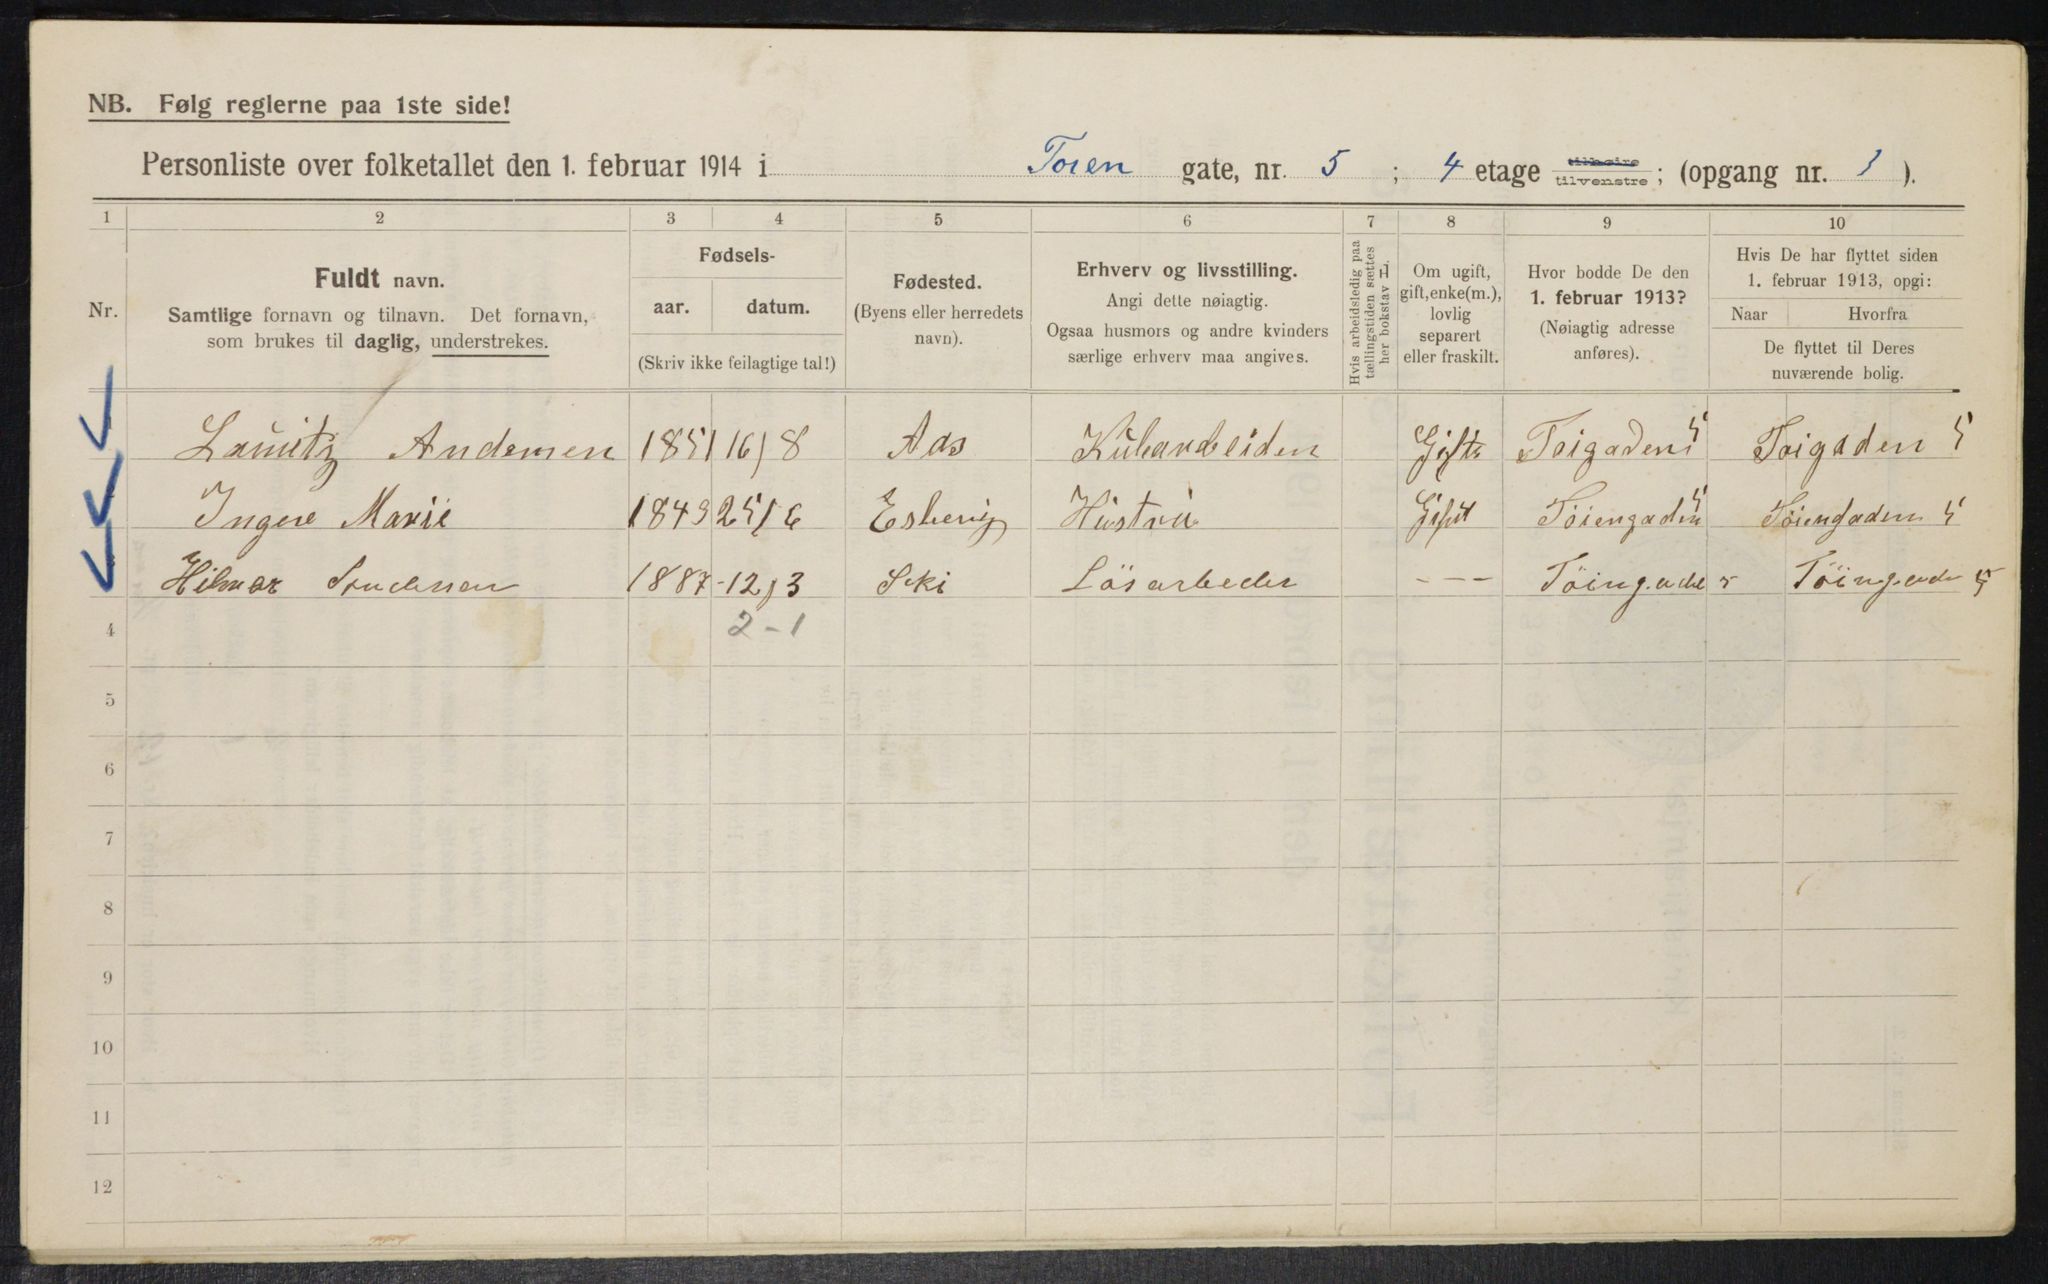 NB. Følg reglerne paa 1ste side!
Personliste over folketallet den 1. februar 1914 i Toien gate, nr. 5 ; 4 etage tilhøire tilvenstre; (opgang nr. 1 ).
1 2 3 4 5 6 7 8 9 10
Nr.
Fuldt navn.
Samtlige fornavn og tilnavn. Det fornavn,
som brukes til daglig, understrekes.
Fødsels-
aar. datum.
(Skriv ikke feilagtige tal!)
Fødested.
(Byens eller herredets
navn).
Erhverv og livsstilling.
Angi dette nøiagtig.
Ogsaa husmors og andre kvinders
særlige erhverv maa angives.
Hvis arbeidsledig paa
tællingstiden sættes
her bokstav H.
Om ugift,
gift, enke(m.),
lovlig
separert
eller fraskilt.
Hvor bodde De den
1. februar 1913?
(Nøiagtig adresse
anføres).
Hvis De har flyttet siden
1. februar 1913, opgi:
Naar Hvorfra
De flyttet til Deres
nuværende bolig.
Lauritz Andersen 1851 16/8 Aas Gift Toigaden 5 Toigaden 5
Ingere Marie 1849 25/6 Hustru Gift Töiengaden 5 Töiengaden 5
Hilmar Andersen 1887 - 12/3 Ski Lösarbeder - - - Töingade 5 Töingade 5
2 - 1
4
5
6
7
8
9
10
11
12